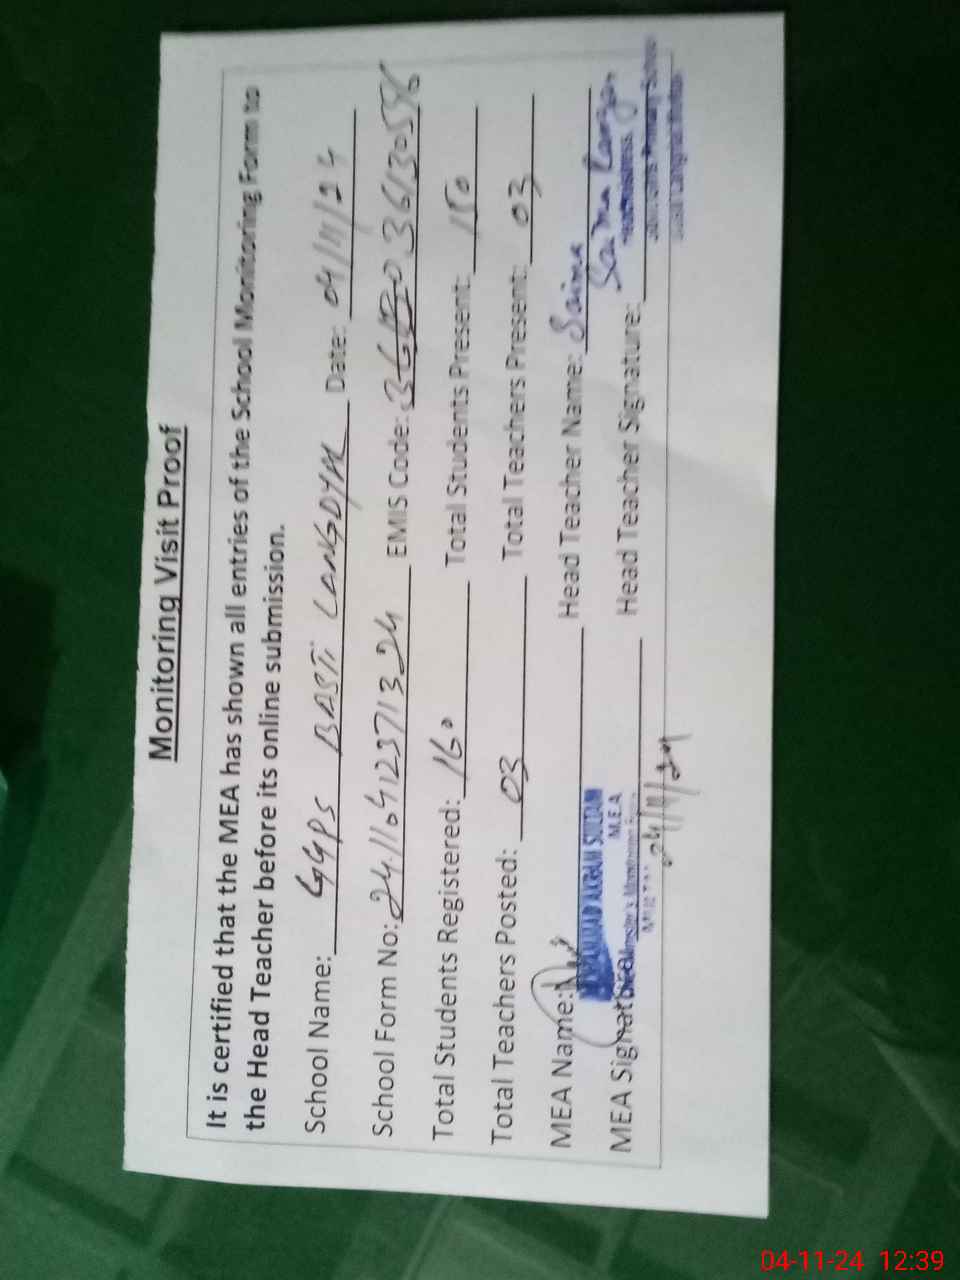 Monitoring Visit Proof
It is certified that the MEA has shown all entries of the School Monitoring Form to
the Head Teacher before its online submission.
School Name: GGPS BASTI LANGDYAL Date: 04/11/24
School Form No: 24.110412371324 EMIS Code: 36130556
Total Students Registered: 160 Total Students Present: 150
Total Teachers Posted: 03 Total Teachers Present: 03
MEA Name: MUHAMMAD AKRAM SULTAN Head Teacher Name: Saima
M.E.A
MEA Signature Head Teacher Signature: Saima
Headmistress
Primary School
04/11/24
04-11-24 12:39